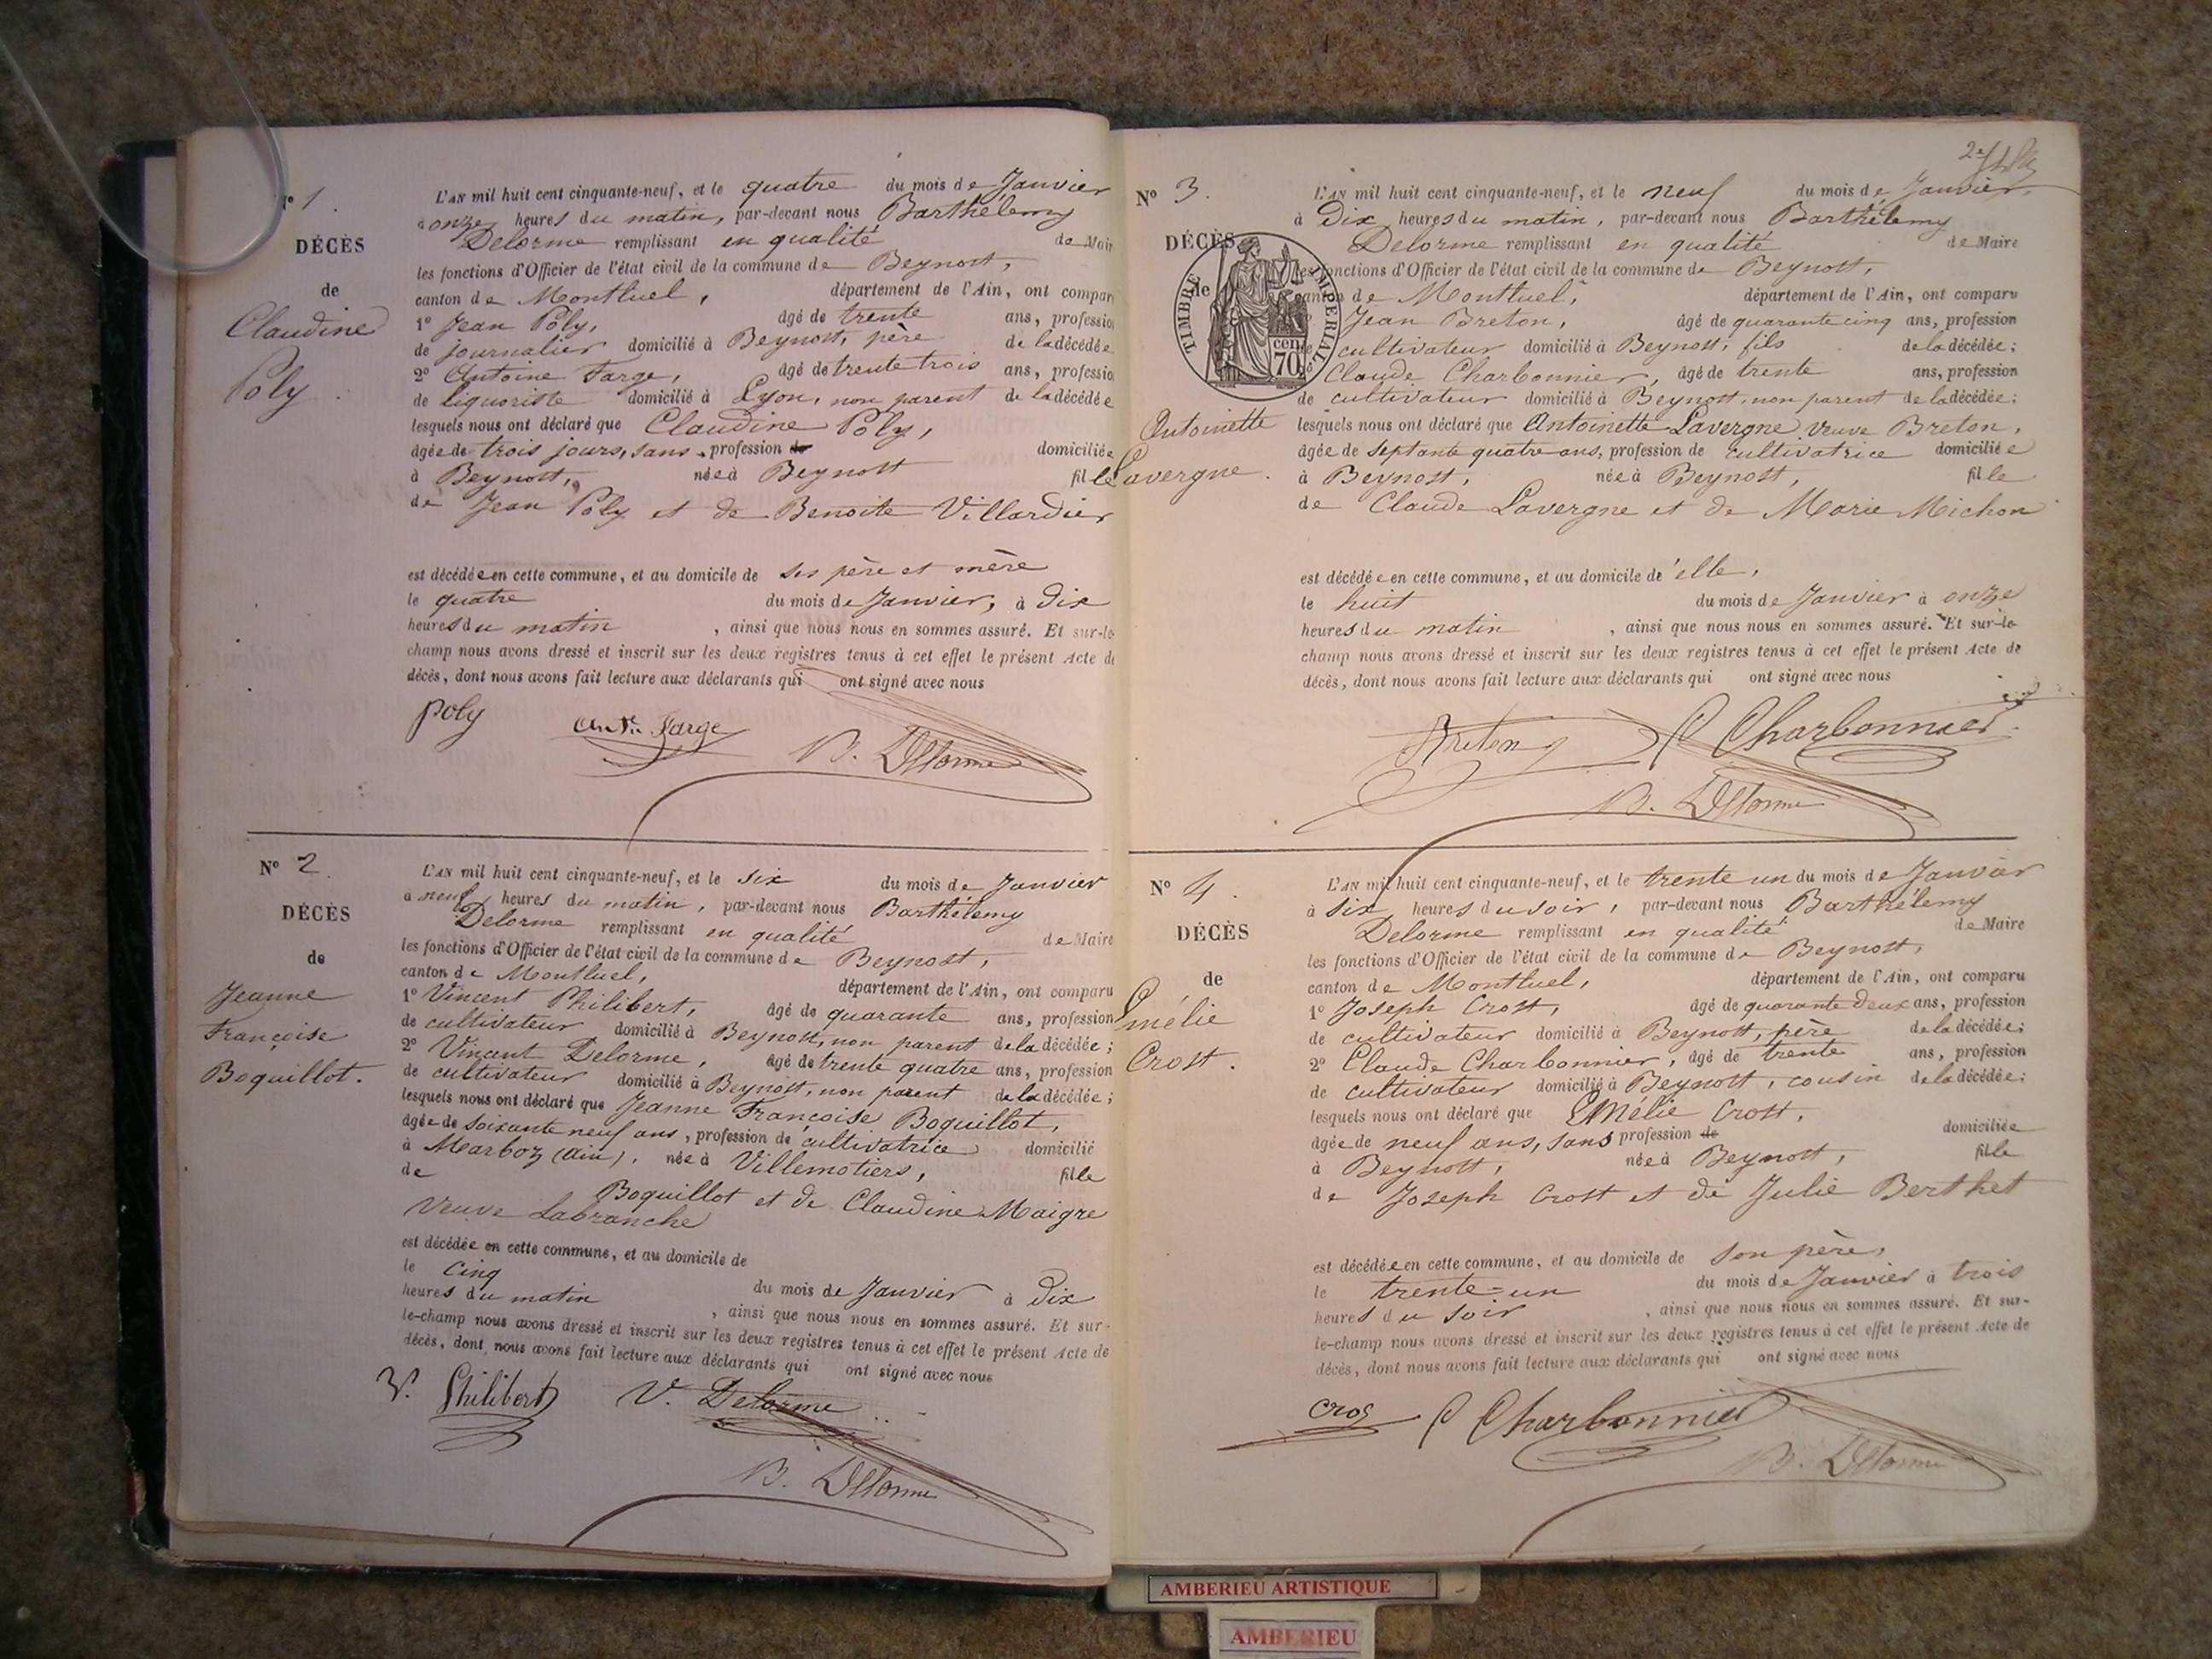 N° 1.
DÉCÈS
de
Claudine
Poly.
L'AN mil huit cent cinquante-neuf, et le quatre du mois de Janvier
à onze heures du matin, par-devant nous Barthélemy
Delorme remplissant en qualité de Mair
les fonctions d'Officier de l'état civil de la commune de Beynost,
canton de Montluel, département de l'Ain, ont compar
1° Jean Poly, âgé de trente ans, professio
de journalier domicilié à Beynost, père de la décédée
2° Antoine Farge, âgé de trente trois ans, professio
de liquoriste domicilié à Lyon, non parent de la décédée
lesquels nous ont déclaré que Claudine Poly,
âgée de trois jours, sans profession de domiciliée
à Beynost, née à Beynost fille
de Jean Poly et de Benoite Villardier
est décédée en cette commune, et au domicile de ses père et mère
le quatre du mois de Janvier, à dix
heures du matin, ainsi que nous nous en sommes assuré. Et sur-le-
champ nous avons dressé et inscrit sur les deux registres tenus à cet effet le présent Acte de
décès, dont nous avons fait lecture aux déclarants qui ont signé avec nous
poly Ant.ne Farge B. Delorme
N° 2.
DÉCÈS
de
Jeanne
Françoise
Boquillot.
L'AN mil huit cent cinquante-neuf, et le six du mois de Janvier
à neuf heures du matin, par-devant nous Barthélemy
Delorme remplissant en qualité de Maire
les fonctions d'Officier de l'état civil de la commune de Beynost,
canton de Montluel, département de l'Ain, ont comparu
1° Vincent Philibert, âgé de quarante ans, profession
de cultivateur domicilié à Beynost, non parent de la décédée;
2° Vincent Delorme, âgé de trente quatre ans, profession
de cultivateur domicilié à Beynost, non parent de la décédée;
lesquels nous ont déclaré que Jeanne Françoise Boquillot,
âgée de soixante neuf ans, profession de cultivatrice domicilié
à Marboz (Ain), née à Villemotiers, fille
de Boquillot et de Claudine Maigre
Veuve Labranche
est décédée en cette commune, et au domicile de
le cinq du mois de Janvier à dix
heures du matin, ainsi que nous nous en sommes assuré. Et sur-
le-champ nous avons dressé et inscrit sur les deux registres tenus à cet effet le présent Acte de
décès, dont nous avons fait lecture aux déclarants qui ont signé avec nous
V. Philibert V. Delorme
B. Delorme
2e
N° 3.
DÉCÈS
de
TIMBRE IMPERIAL
70 cen
Antoinette
Lavergne.
L'AN mil huit cent cinquante-neuf, et le neuf du mois de Janvier
à Dix heures du matin, par-devant nous Barthélemy
Delorme remplissant en qualité de Maire
les fonctions d'Officier de l'état civil de la commune de Beynost,
canton de Montluel, département de l'Ain, ont comparu
Jean Breton, âgé de quarante cinq ans, profession
de cultivateur domicilié à Beynost, fils de la décédée;
Claude Charbonnier, âgé de trente ans, profession
de cultivateur domicilié à Beynost, non parent de la décédée;
lesquels nous ont déclaré que Antoinette Lavergne veuve Breton,
âgée de septante quatre ans, profession de cultivatrice domiciliée
à Beynost, née à Beynost, fille
de Claude Lavergne et de Marie Michon
est décédée en cette commune, et au domicile d'elle,
le huit du mois de Janvier à onze
heures du matin, ainsi que nous nous en sommes assuré. Et sur-le-
champ nous avons dressé et inscrit sur les deux registres tenus à cet effet le présent Acte de
décès, dont nous avons fait lecture aux déclarants qui ont signé avec nous
Breton C Charbonnier
B. Delorme
N° 4.
DÉCÈS
de
Emélie
Crost.
L'AN mil huit cent cinquante-neuf, et le trente un du mois de Janvier
à six heures du soir, par-devant nous Barthélemy
Delorme remplissant en qualité de Maire
les fonctions d'Officier de l'état civil de la commune de Beynost,
canton de Montluel, département de l'Ain, ont comparu
1° Joseph Crost, âgé de quarante deux ans, profession
de cultivateur domicilié à Beynost, père de la décédée;
2° Claude Charbonnier, âgé de trente ans, profession
de cultivateur domicilié à Beynost, cousin de la décédée;
lesquels nous ont déclaré que Emélie Crost,
âgée de neuf ans, sans profession de domiciliée
à Beynost, née à Beynost, fille
de Joseph Crost et de Julie Berthet
est décédée en cette commune, et au domicile de son père,
le trente-un du mois de Janvier à trois
heures du soir, ainsi que nous nous en sommes assuré. Et sur-
le-champ nous avons dressé et inscrit sur les deux registres tenus à cet effet le présent Acte de
décès, dont nous avons fait lecture aux déclarants qui ont signé avec nous
Cros C Charbonnier
B. Delorme
AMBERIEU ARTISTIQUE
AMBERIEU